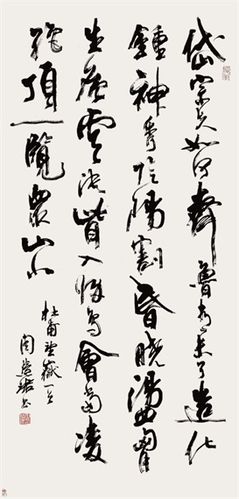 岱宗夫如何齊魯青未了造化
鍾神秀陰陽割昏曉盪胸
生層雲決眥入歸鳥會當凌
絕頂一覽衆山小
杜甫望嶽一首
周慧珺書